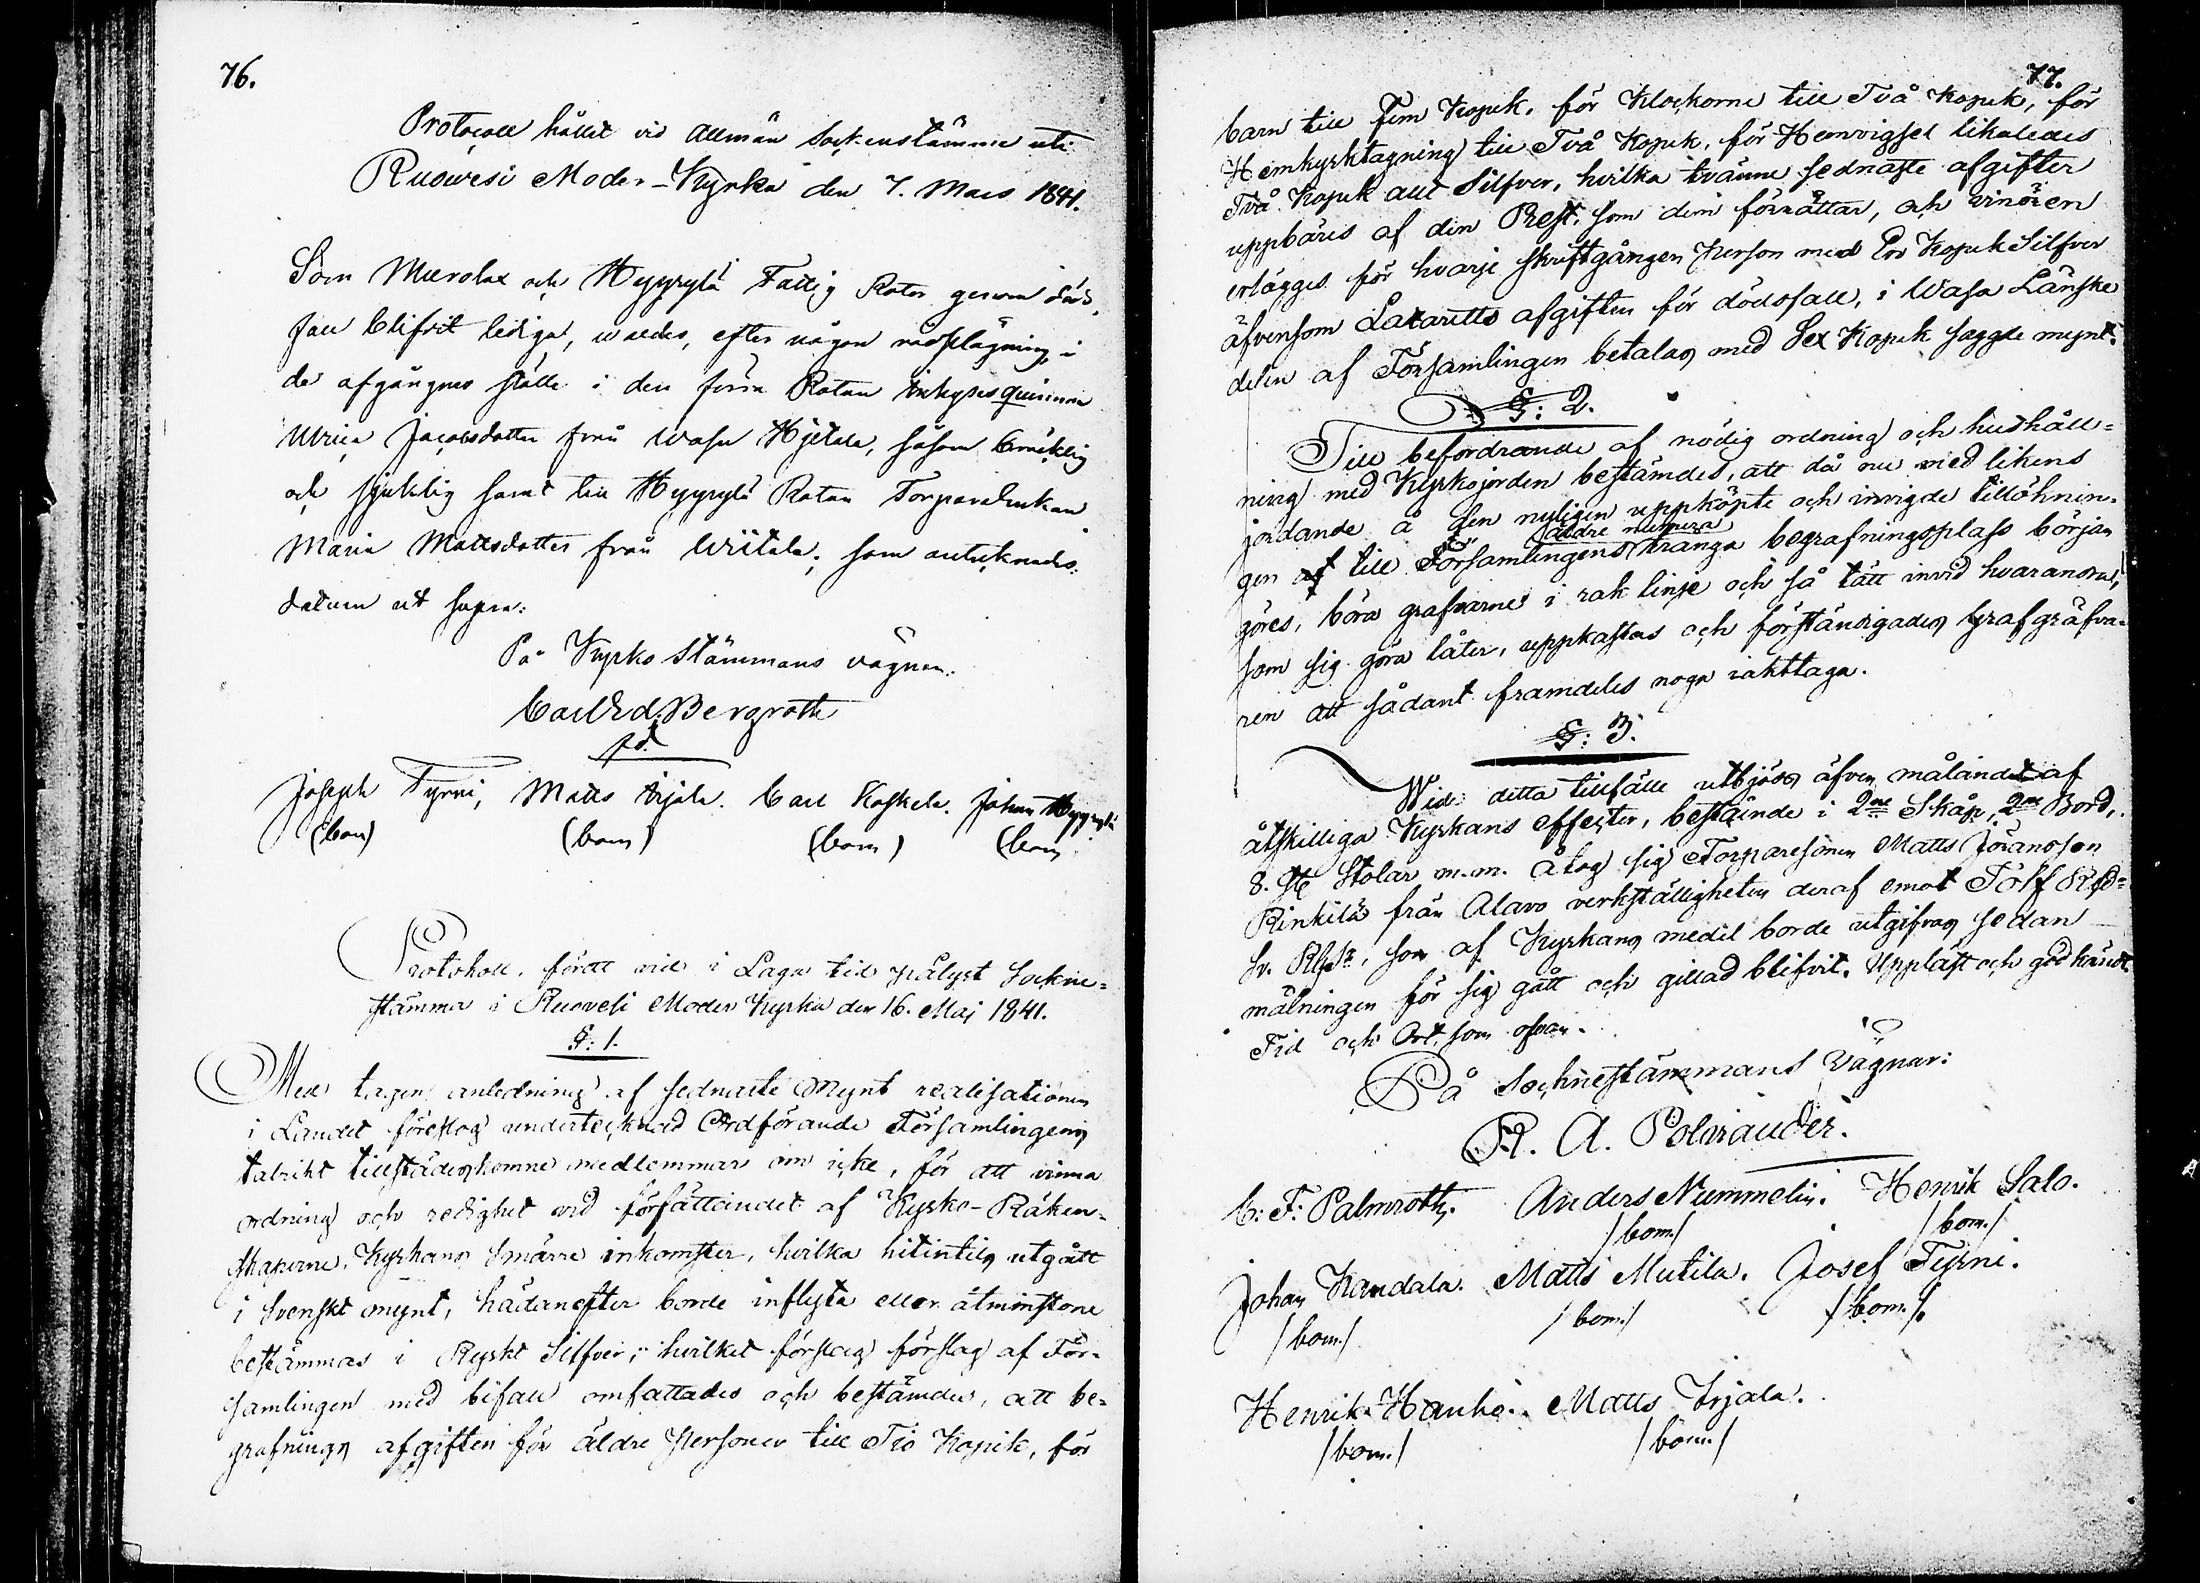 76.
Protocoll hållit vid allmän Sockenstämma uti
Ruovesi Moder-Kyrka den 7. Mars 1841.
Som Murolax och Hyyrylä Fattig Rotar genom döds
fall blifvit lediga, valdes, efter någon rådplägning, i
de afgångnes ställe i den förra Rotan inhysesquinnan
Ulrica Jacobsdotter från Wasu Hjetala, såsom bräcklig
och sjuklig samt till Hyyrylä Rotan Torpareenkan
Maria Mattsdotter från Wiitala; som antecknades.
datum ut supra:
På Kyrko Stämmans vägnar:
Carl Ed. Bergroth
Joseph Tyrni, Matts Irjala. Carl Koskela. Johan Hyyrylä
(bom) (bom) (bom) (bom
Protokoll, fördt vid i Laga tid pålyst Sockne-
stämma i Ruovesi Moder Kyrka den 16. Maj 1841.
§: 1.
Med tagen anledning af sednaste Mynt realisationen
i Landet föreslog undertecknad Ordförande Församlingens
talrikt tillstädeskomne medlemmar om icke, för att vinna
ordning och redighet vid författandet af Kyrko-Räken-
skaperne, Kyrkans smärre inkomster, hvilka hitintils utgått
i Svenskt mynt, hädanefter borde inflyta eller åtminstone
bestämmas i Ryskt Silfver; hvilket förslag förslag af För-
samlingen med bifall omfattades och bestämdes, att be-
grafnings afgiften för äldre Personer till Tio Kopek, för
77.
barn till Fem Kopek, för Klockorne till Två Kopek, för
Hemkyrktagning till Två Kopek, för Hemvigsel likaledes
Två Kopek allt Silfver, hvilka tvänne sednaste afgifter
uppbäres af den Prest, som dem förrättar, och vinören
erlägges för hvarje skriftgången Person med En Kopek Silfver
äfvensom Lazaretts afgiften för dödsfall, i Wasa Länske
delen af Församlingen betalas med Sex Kopek sagde mynt.
§: 2.
Till befordrande af nödig ordning och hushåll-
ning med Kyrkojorden bestämdes, att då nu med likens
jordande å den nyligen uppköpte och invigde tillöknin-
äldre numera
gen af till Församlingens trånga begrafningsplats början
göres, böra grafvarne i rak linje och så tätt invid hvarandra,
som sig göra låter, uppkastas och förständigades Grafgräfva-
ren att sådant framdeles noga iakttaga.
§: 3.
Wid detta tillfälle utbjöds äfven målandet af
åtskilliga Kyrkans effecter, bestående i 2ne Skåp, 2ne Bord,
8. St Stolar m.m. åtog sig Torparesonen Matts Jöransson
Rinkilä från Alavo verkställigheten deraf emot Tolf Rd
Sv. Rgs, som af Kyrkans medel borde utgifvas sedan
målningen för sig gått och gillad blifvit. Uppläst och godkändt
Tid och Ort, som ofvan.
På Sochnestämmans Vägnar:
R. A. Polviander.
C: F: Palmroth. Anders Nummelin. Henrik Salo.
/bom/ /bom./
Johan Kandala. Matts Mutila. Josef Tyrni.
/bom./ /bom./ /bom./
Henrik Hanho. Matts Irjala.
/bom./ /bom./